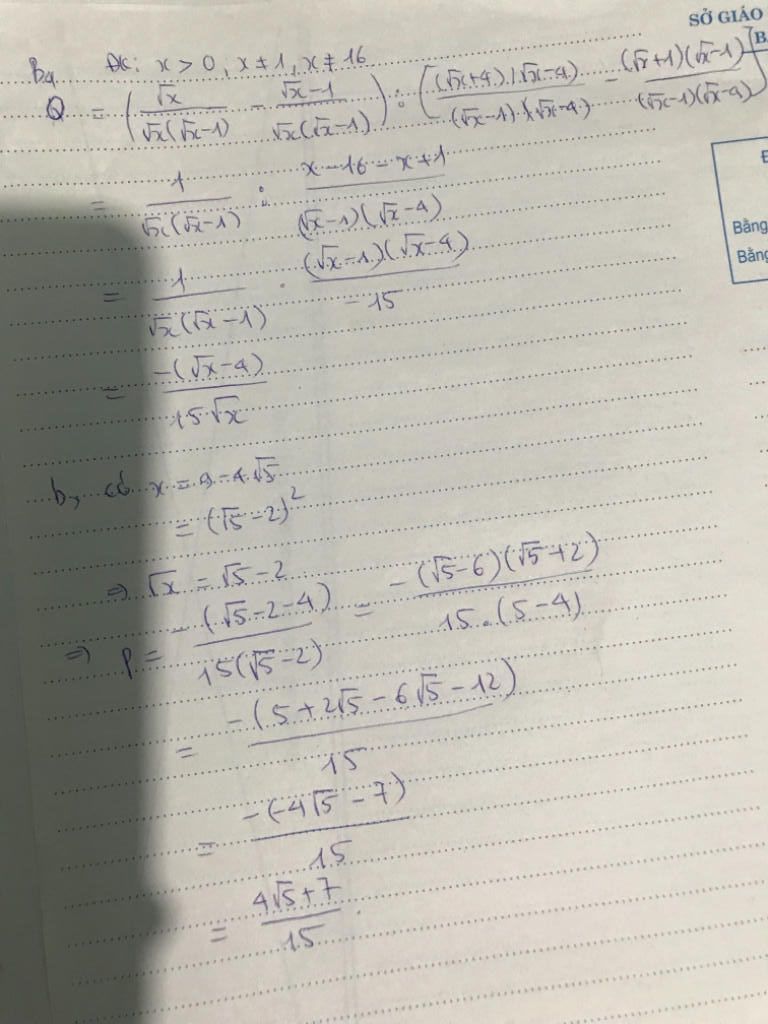 SỞ GIÁO
B
Bài ĐK: x > 0, x ≠ 1, x ≠ 16
Q = (√x / √x(√x-1) - √x-1 / √x(√x-1)) : [(√x+4)(√x-4) / (√x-1).(√x-4) - (√x+1)(√x-1) / (√x-1)(√x-4)]
= 1 / √x(√x-1) : x-16-x+1 / (√x-1)(√x-4)
Bằng
Bằng
= 1 / √x(√x-1) . (√x-1)(√x-4) / -15
= -(√x-4) / 15.√x
b, có x = 9-4√5
= (√5-2)²
⇒ √x = √5-2
⇒ P = -(√5-2-4) / 15(√5-2) = -(√5-6)(√5+2) / 15.(5-4)
= -(5+2√5-6√5-12) / 15
= -(-4√5-7) / 15
= 4√5+7 / 15